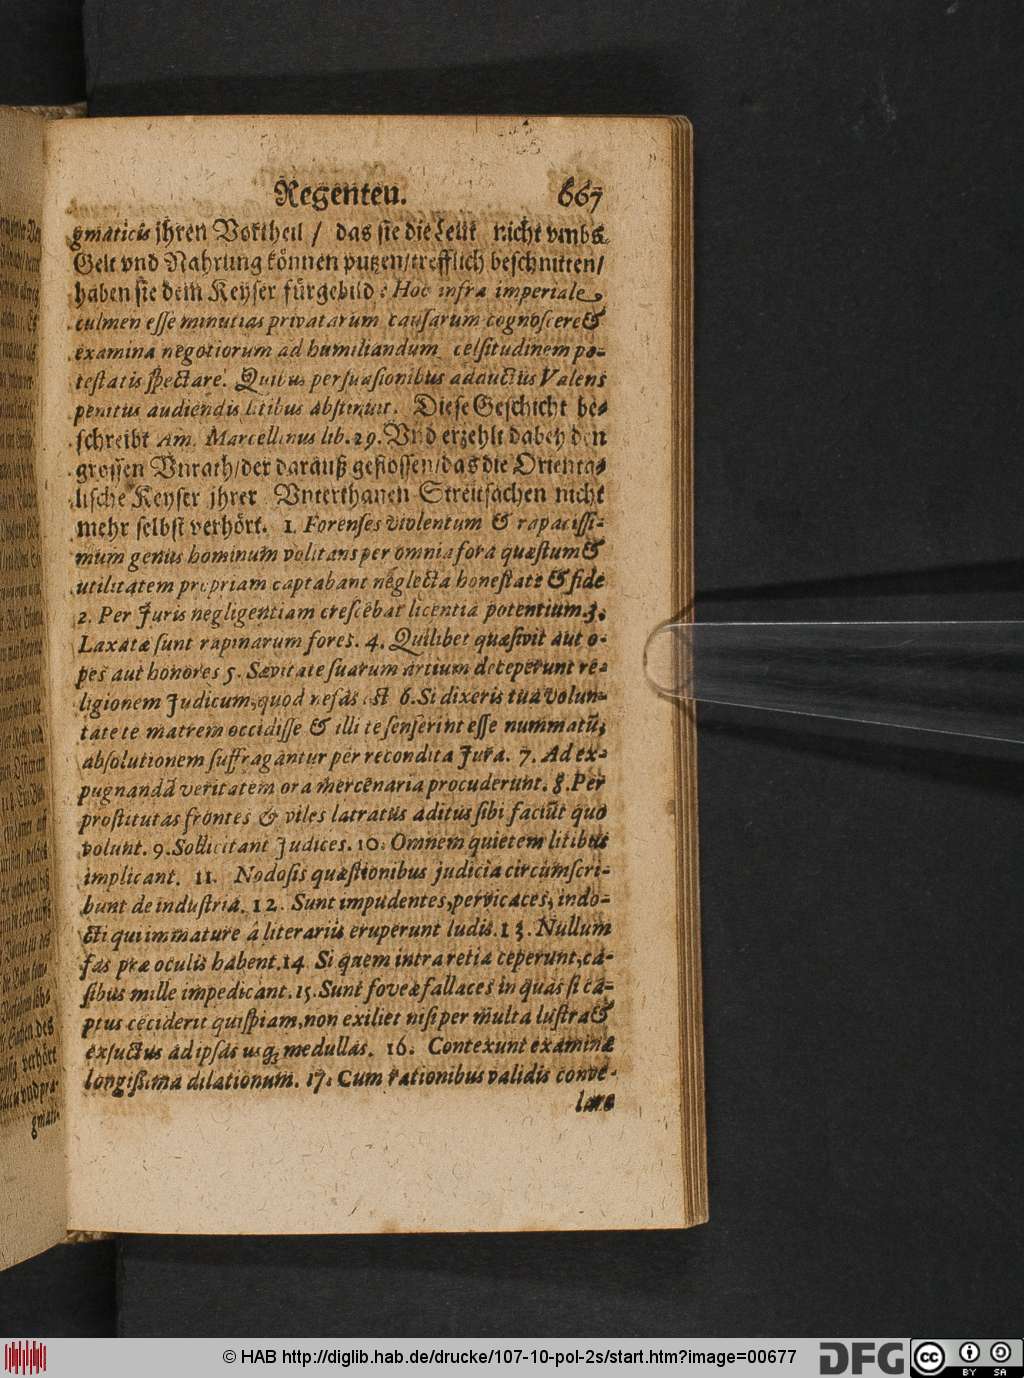 Regenten. 667
gmaticis jhren Vortheil / das sie die Leut nicht vmbs
Gelt vnd Nahrung können putzen/trefflich beschnitten/
haben sie dem Keyser fürgebild: Hoc infra imperiale
culmen esse minutias privatarum causarum cognoscere &
examina negotiorum ad humiliandum celsitudinem po-
testatis spectare. Quibus persuasionibus adductus Valens
penitus audiendis litibus abstinuit. Diese Geschicht be-
schreibt Am. Marcellinus lib. 29. Vnd erzehlt dabey den
grossen Vnrath/der darauß geflossen/das die Orienta-
lische Keyser jhrer Vnterthanen Streitsachen nicht
mehr selbst verhört. 1. Forenses violentum & rapacissi-
mum genus hominum volitans per omnia fora quæstum &
utilitatem propriam captabant neglecta honestate & fide
2. Per Juris negligentiam crescebat licentia potentium. 3.
Laxatæ sunt rapinarum fores. 4. Quilibet quæsivit aut o-
pes aut honores 5. Sævitate suarum artium deceperunt re-
ligionem Judicum, quod nefas est 6. Si dixeris tua volun-
tate te matrem occidisse & illi te senserint esse nummatū,
absolutionem suffragantur per recondita Jura. 7. Ad ex-
pugnandā veritatem ora mercenaria procuderunt. 8. Per
prostitutas frontes & viles latratus aditus sibi faciūt quo
volunt. 9. Sollicitant Judices. 10. Omnem quietem litibus
implicant. 11. Nodosis quæstionibus judicia circumscri-
bunt de industria. 12. Sunt impudentes, pervicaces, indo-
cti qui immature â literariis eruperunt ludis. 13. Nullum
fas præ oculis habent. 14 Si quem intra retia ceperunt, ca-
sibus mille impedicant. 15. Sunt foveæ fallaces in quas si ca-
ptus ceciderit quispiam, non exiliet nisi per multa lustra &
exsuctus ad ipsas usq; medullas. 16. Contexunt examina
longissima dilationum. 17. Cum rationibus validis conve-
lare
© HAB http://diglib.hab.de/drucke/107-10-pol-2s/start.htm?image=00677
DFG cc BY SA